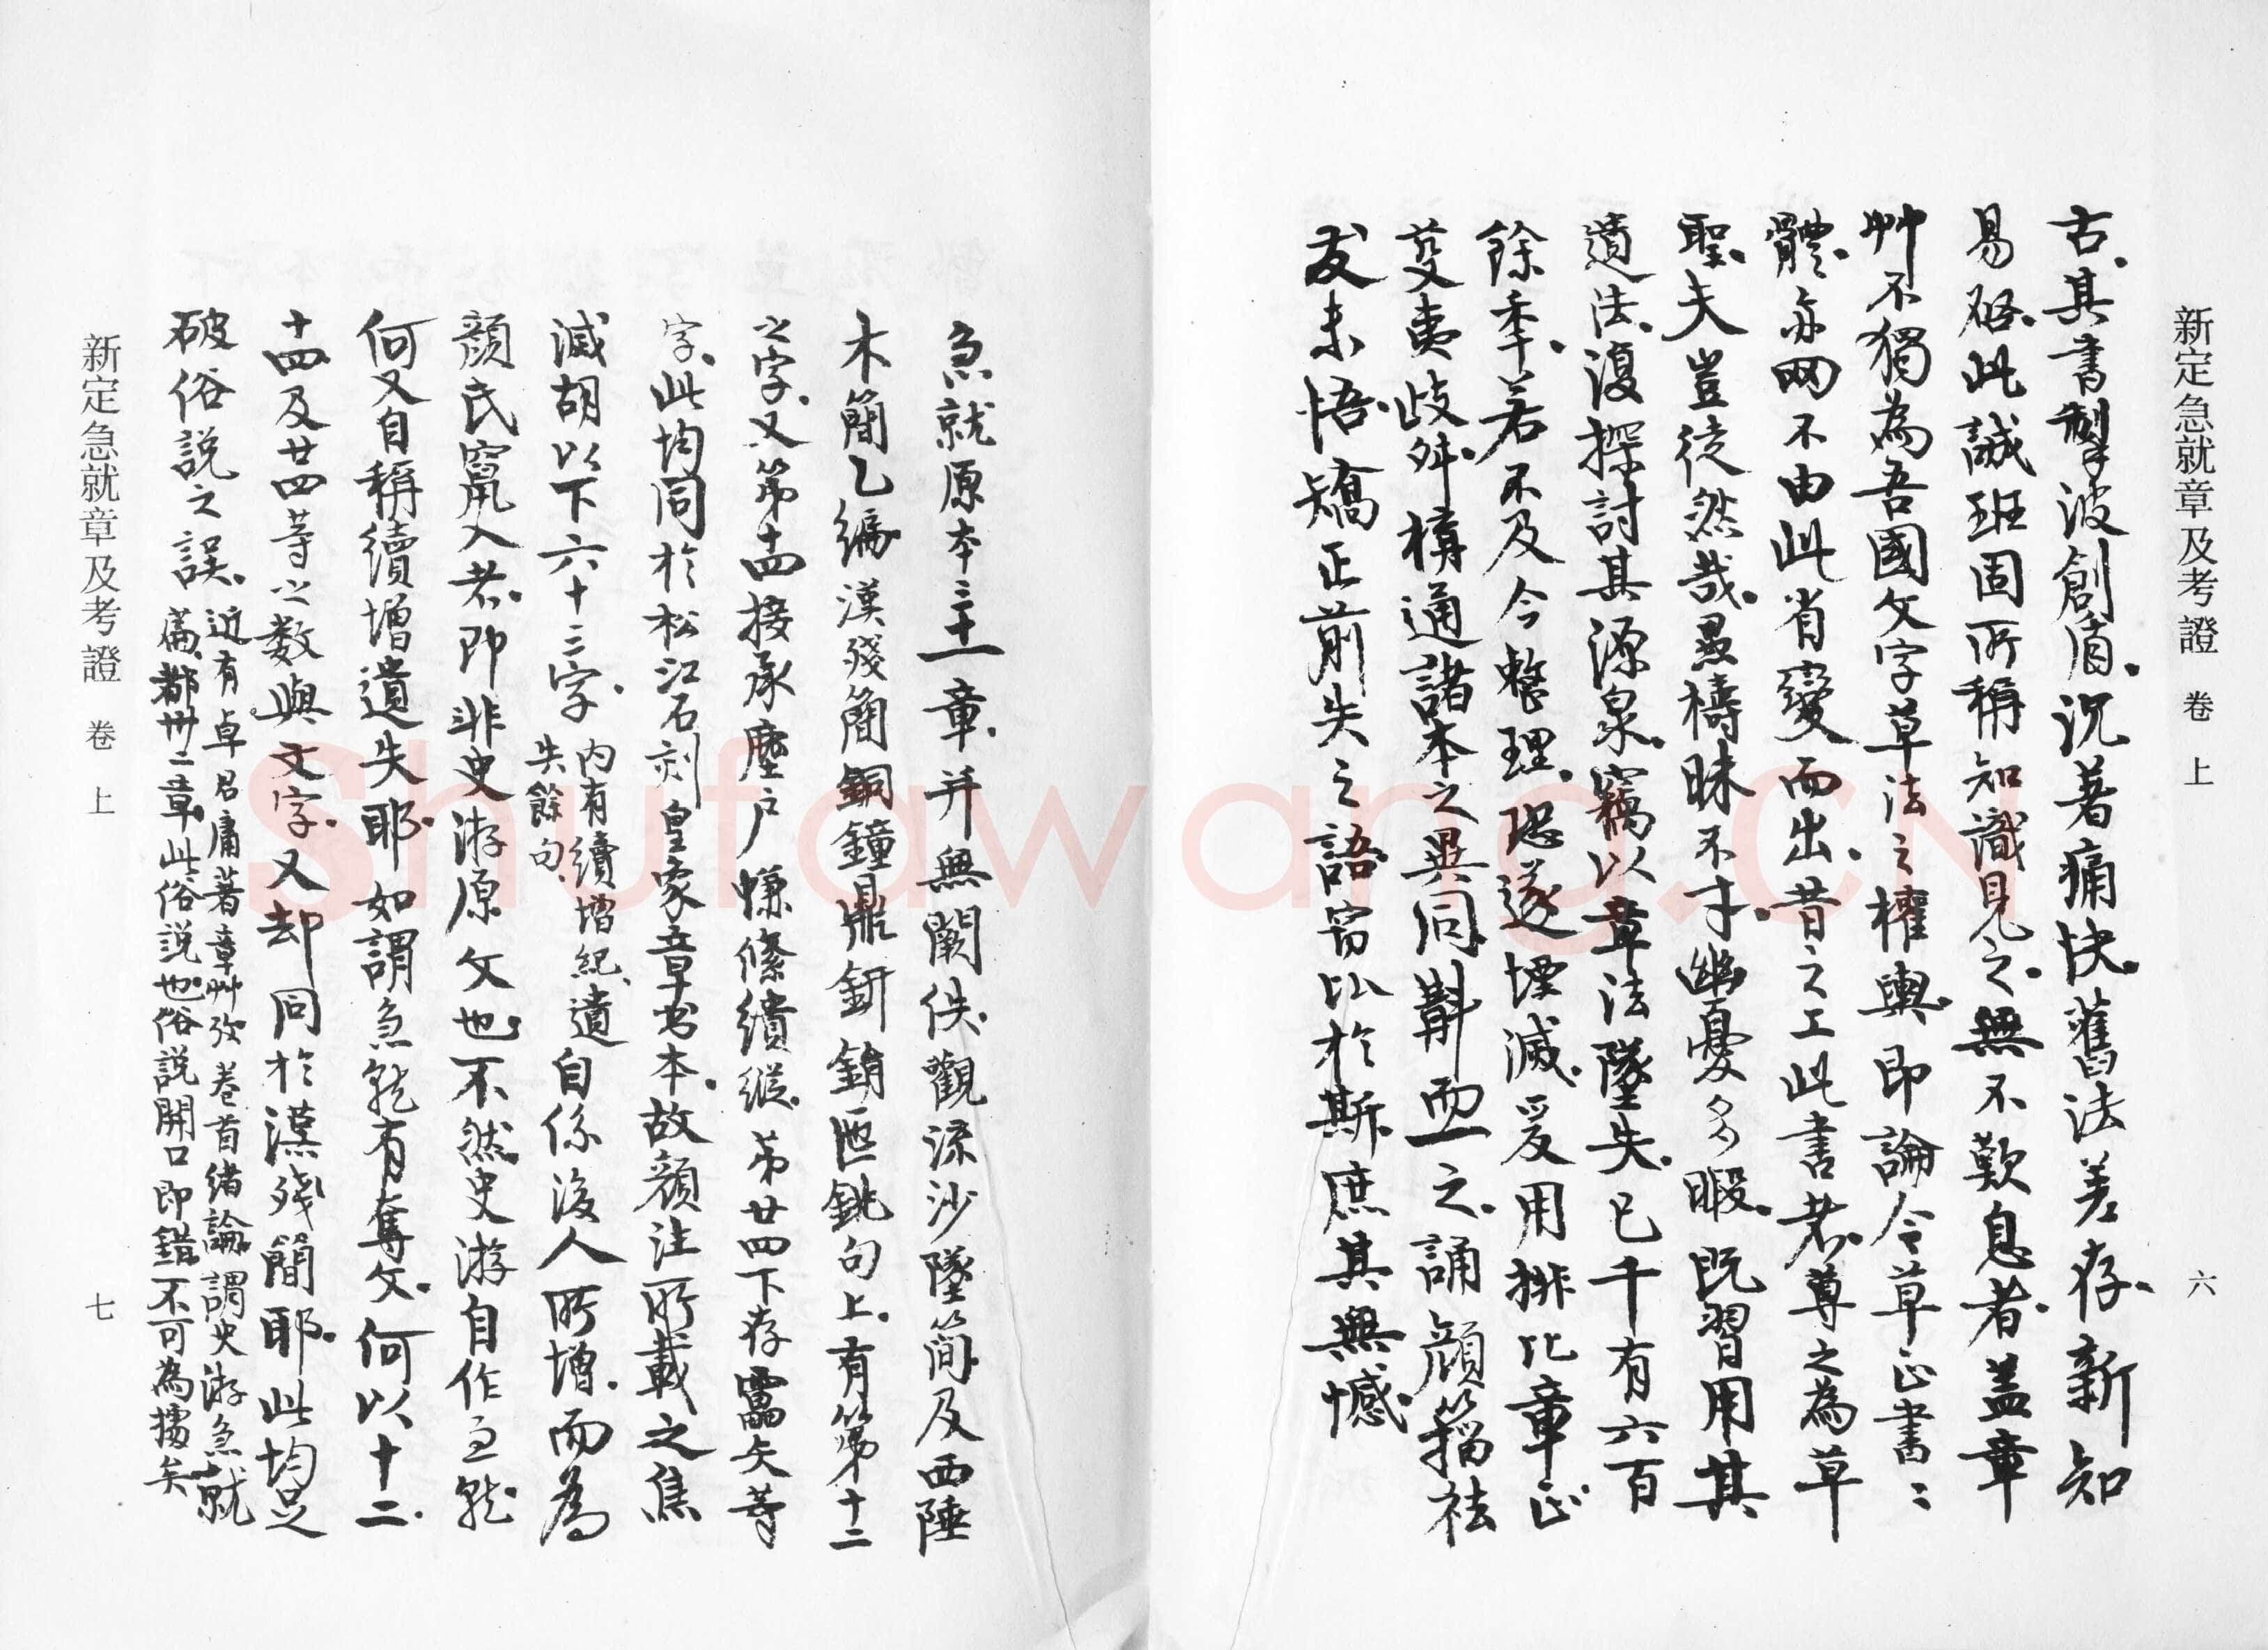 新定急就章及考證 卷上 六
古.其書掣波創眉.沉著痛快.舊法差存.新知
易啓.此誠班固所稱知識見之.無不歎息者.蓋章
艸不獨為吾國文字草法之權輿.即論今草正書二
體.亦罔不由此省變而出.昔之工此書者.尊之為草
聖.夫豈徒然哉.愚檮昧不才.幽憂多暇.既習用其
遺法.復探討其源泉.竊以章法墜失.已千有六百
餘季.若不及今整理.恐遂堙滅.爰用排比章正
芟夷歧舛.構通諸本之異同.斠而一之.誦顏籀祛
发未悟矯正前失之語.竊比於斯.庶其無憾.
急就原本三十一章.并無闕佚.觀流沙墜簡.及西陲
木簡乙編.漢殘簡銅鐘鼎鈃鋗匜銚句上.有第十二
之字.又第十四接承塵户幰絛繢緃.第廿四下存雷矢等
字.此均同於松江石刻皇象章書本.故顏注所載之焦
滅胡以下六十三字.
内有續增紀.遺
失餘句.
自係後人所增.而為
顏氏竄入者.即非史游原文也.不然.史游自作急就
何又自稱續增遺失耶.如謂急就有奪文.何以十二.
十四及廿四等之數與文字.又却同於漢殘簡耶.此均足
破俗説之誤.
近有卓君庸著章艸攷卷首緒論謂史游急就
篇.都卅二章.此俗説也.俗説開口即錯不可為據矣
新定急就章及考證 卷上 七
Shufawang.CN